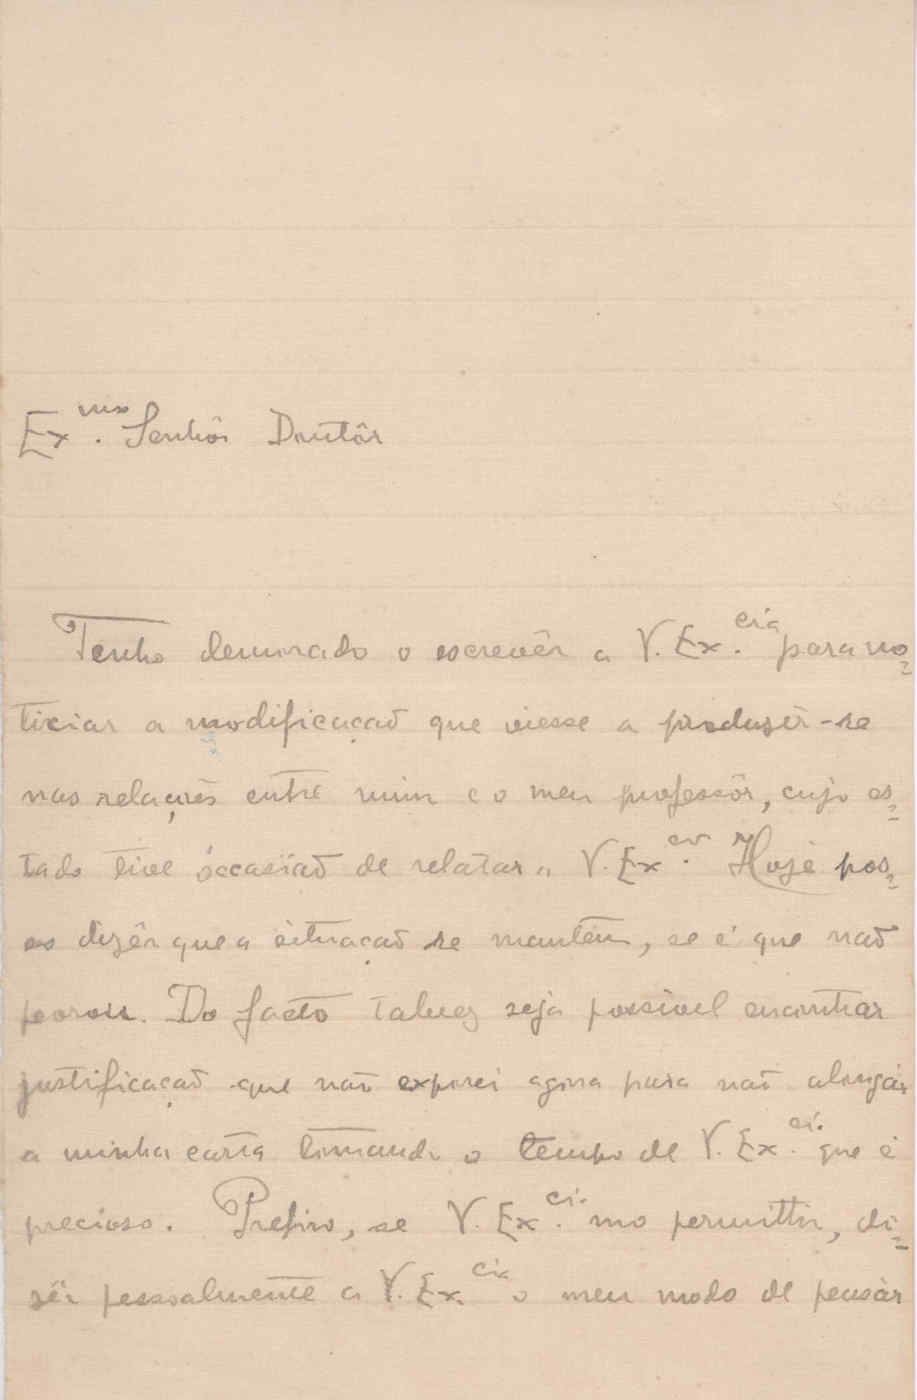 Ex.mo Senhôr Doutôr
Tenho demorado o escrevêr a V. Ex.cia para no-
ticiar a modificação que viesse a produzir-se
nas relações entre mim e o meu professôr, cujo es-
tado tive occasião de relatar a V. Ex.cia Hoje pos-
so dizêr que a situação se mantem, se é que não
peorou. Do facto talvez seja possivel encontrar
justificação que não exporei agora para não alongár
a minha carta tomando o tempo de V. Ex.cia que é
precioso. Prefiro, se V. Ex.cia mo permittir, di-
zêr pessoalmente a V. Ex.cia o meu modo de pensár